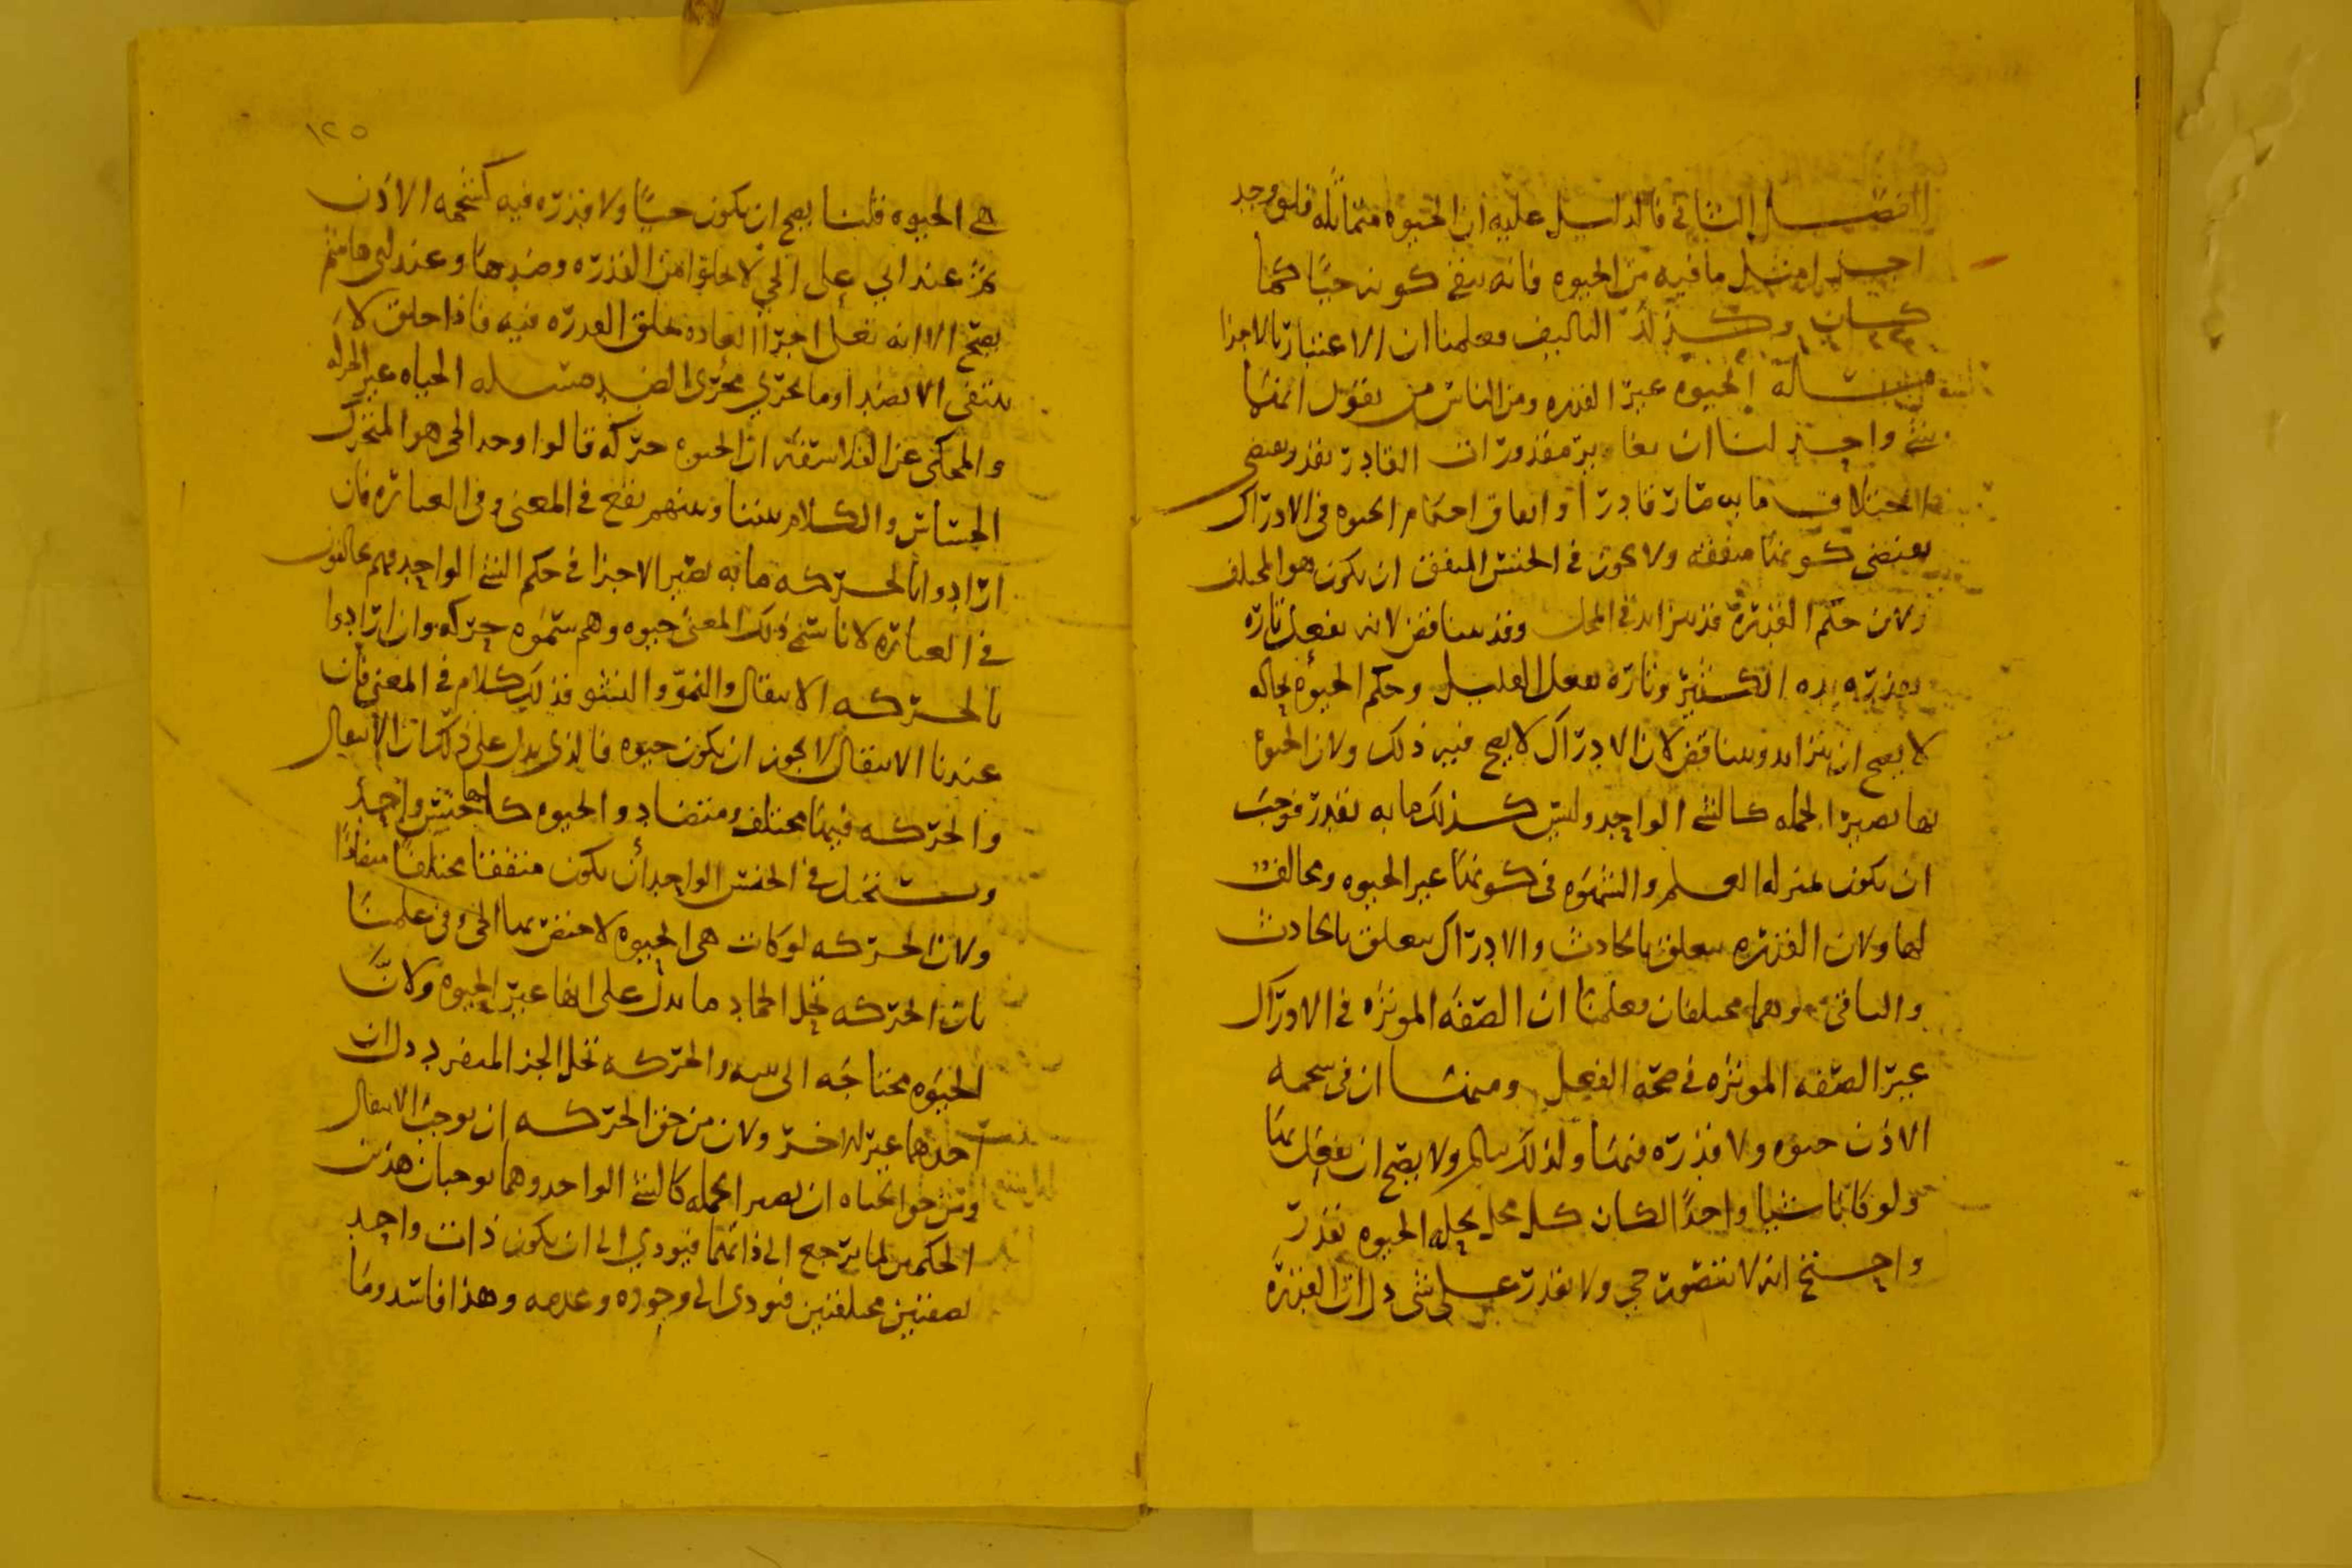 الفصل الثاني فالدليل عليه ان الحيوه متماثله فلو وجد
اجزا مثل ما فيه من الحيوه فانه يبقى كونه حيًا كما
كان وكذلك التاليف فعلمنا ان الاعتبار بالاجزا
مساله الحيوه غير القدره ومن الناس من يقول انهما
شي واحد لنا ان تغاير مقدورات القادر بقدر يقتضي
اختلاف ما به صار قادرا واتفاق احكام الحيوه في الادراك
يقتضي كونها متفقه ولا يجوز في الجنس المتفق ان يكون هو المختلف
ولان حكم القدره قد يتزايد في المحل وقد يتناقض لانه يفعل تاره
بقدره يده الكثير وتاره يفعل القليل وحكم الحيوه بحاله
لا يصح ان يتزايد ويتناقض لان الادراك لا يصح فيه ذلك ولان الحيوه
بها يصير الجمله كالشي الواحد وليس كذلك ما به يقدر فوجب
ان يكون بمنزله العلم والشهوه في كونها غير الحيوه ومخالفه
لها ولان القدره يتعلق بالحادث والادراك يتعلق بالحادث
والباقي وهما مختلفان فعلمنا ان الصفه الموثره في الادراك
غير الصفه الموثره في صحه الفعل ومنها ان في شحمه
الاذن حيوه ولا قدره فيها ولذلك يالم ولا يصح ان يفعل بها
ولو كانا شيا واحدًا لكان كل محل يحله الحيوه تقدر
انه لا يتصور حي ولا يقدر على شي دل ان القدره
١٢٥
هي الحيوه قلنا يصح ان يكون حيًا ولا قدره فيه كشحمه الاذن
ثم عند ابي على الحي لا يخلوا من القدره وضدها وعند ابي هاشم
يصح الا انه تعالى اجرا العاده بخلق القدره فيه فاذا خلق لا
ينتفى الا بضد او ما يجري مجرى الضد مسله الحياه غير الحركه
والمحكى عن الفلاسفه ان الحيوه حركه قالوا وحد الحي هو المتحرك
الحساس والكلام بيننا وبينهم يقع في المعنى وفي العباره فان
ارادوا بالحركه ما به تصير الاجزا في حكم الشي الواحد فهم مخالفون
في العباره لانا نسمي ذلك المعنى حيوه وهم سموه حركه وان ارادوا
بالحركه الانتقال والنمو والنشو فذلك كلام في المعنى فان
عندنا الانتقال لا يجوز ان يكون حيوه فالذي يدل على ذلك ان الانتقال
والحركه فيها مختلف ومتضاد والحيوه كلها جنس واحد
ويستحيل في الجنس الواحد أن يكون متفقا مختلفًا متضادًا
ولان الحركه لو كانت هي الحيوه لاختص بها الحي وفي علمنا
بان الحركه تحل الجماد ما يدل على انها غير الحيوه ولانَّ
الحيوه محتاجه الى بنيه والحركه تحل الجز المنفرد دل ان
احدهما غير الاخر ولان من حق الحركه ان يوجب الانتقال
ومن حق الحياه ان يصير الجمله كالشي الواحد وهما يوجبان هذين
الحكمين لما يرجع الى ذاتهما فيودي الى ان يكون ذات واحد
بصفتين مختلفتين فيودى الى وجوده وعدمه وهذا فاسد وما